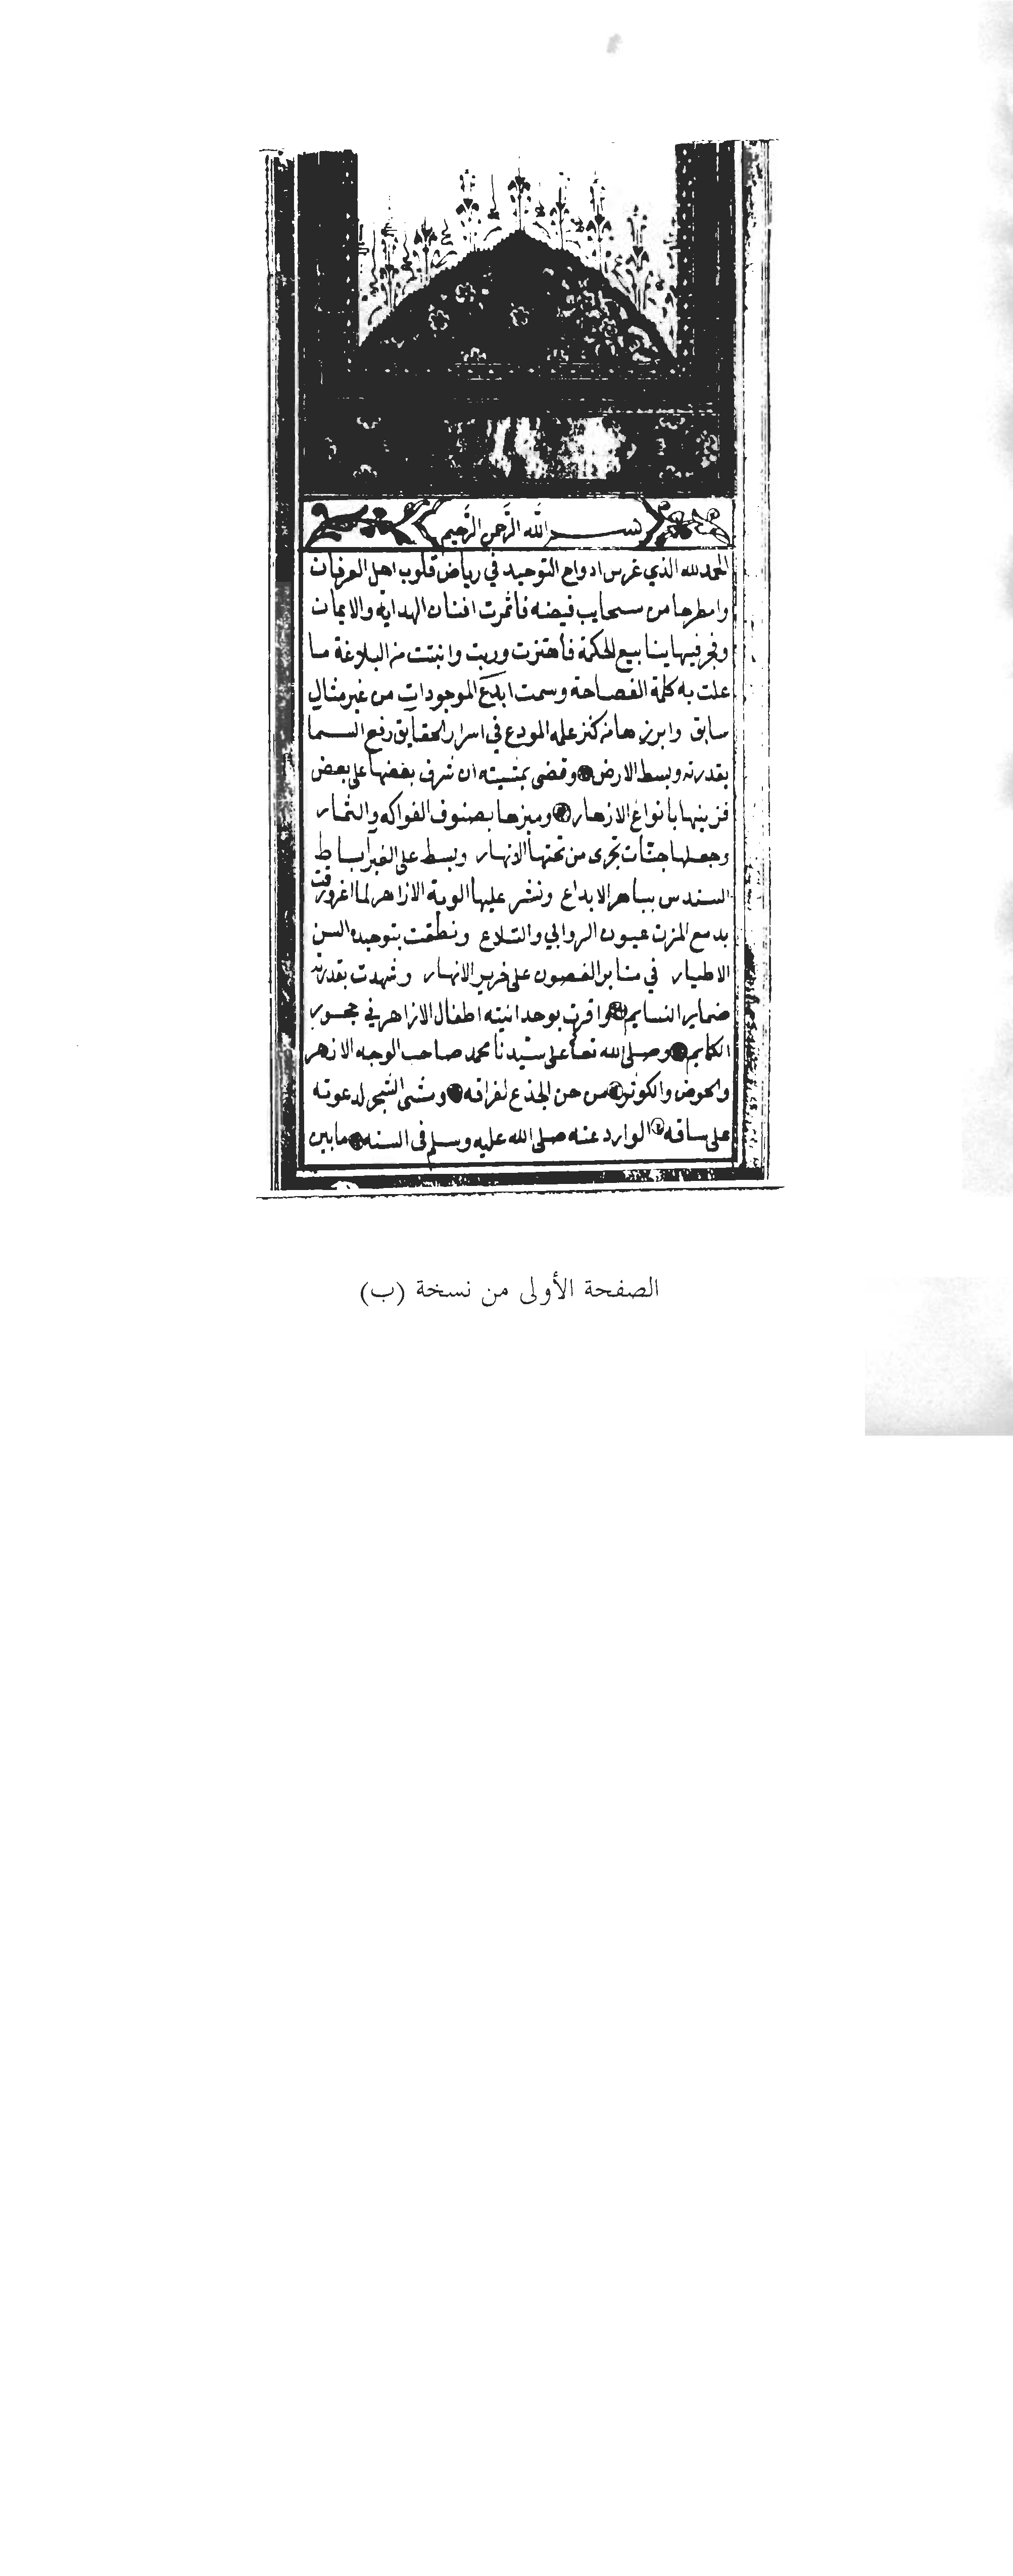 بسم الله الرحمن الرحيم
الحمد لله الذي غرس ادواح التوحيد في رياض قلوب اهل العرفان
وامطرها من سحايب فيضه فاثمرت افنان الهداية والايمان
وفجر فيها ينابيع الحكمة فأهتزت وربت وانبتت من البلاغة ما
علت به كلمة الفصاحة وسمت ابدَعَ الموجوداتِ من غير مثالٍ
سابق وابرزها من كنز علمه المودع في اسرار الحقايق رفع السما
بقدرته وبسط الارض وقضى بمشيته ان شرف بعضها على بعض
فزينها بانواع الازهار وميزها بصنوف الفواكه والثمار
وجعلها جنّات تجرى من تحتها الانهار وبسط على الغبرآ بساط
السندس بباهر الابداع ونشر عليها الوية الازاهر لما اغرورقت
بدمع المزن عيون الروابي والتلاع ونطقت بتوحيده السن
الاطيار في منابر الغصون على خرير الانهار وشهدت بقدرته
ضماير النسايم واقرت بوحدانيته اطفال الازاهر في حجور
الكمايم وصلى الله تعالى على سيّدنا محمد صاحب الوجه الازهر
والحوض والكوثر من حن الجذع لفراقه ومشى الشجر لدعوته
على ساقه الوارد عنه صلى الله عليه وسلم في السنه ما بين
الصفحة الأولى من نسخة (ب)